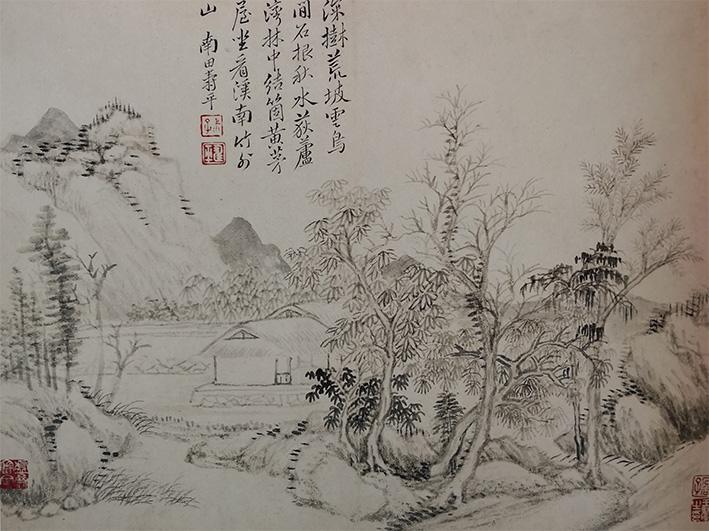 深樹荒坡雲鳥
間石根秋水荻蘆
灣林中結箇黃茅
屋坐看溪南竹外
山 南田壽平